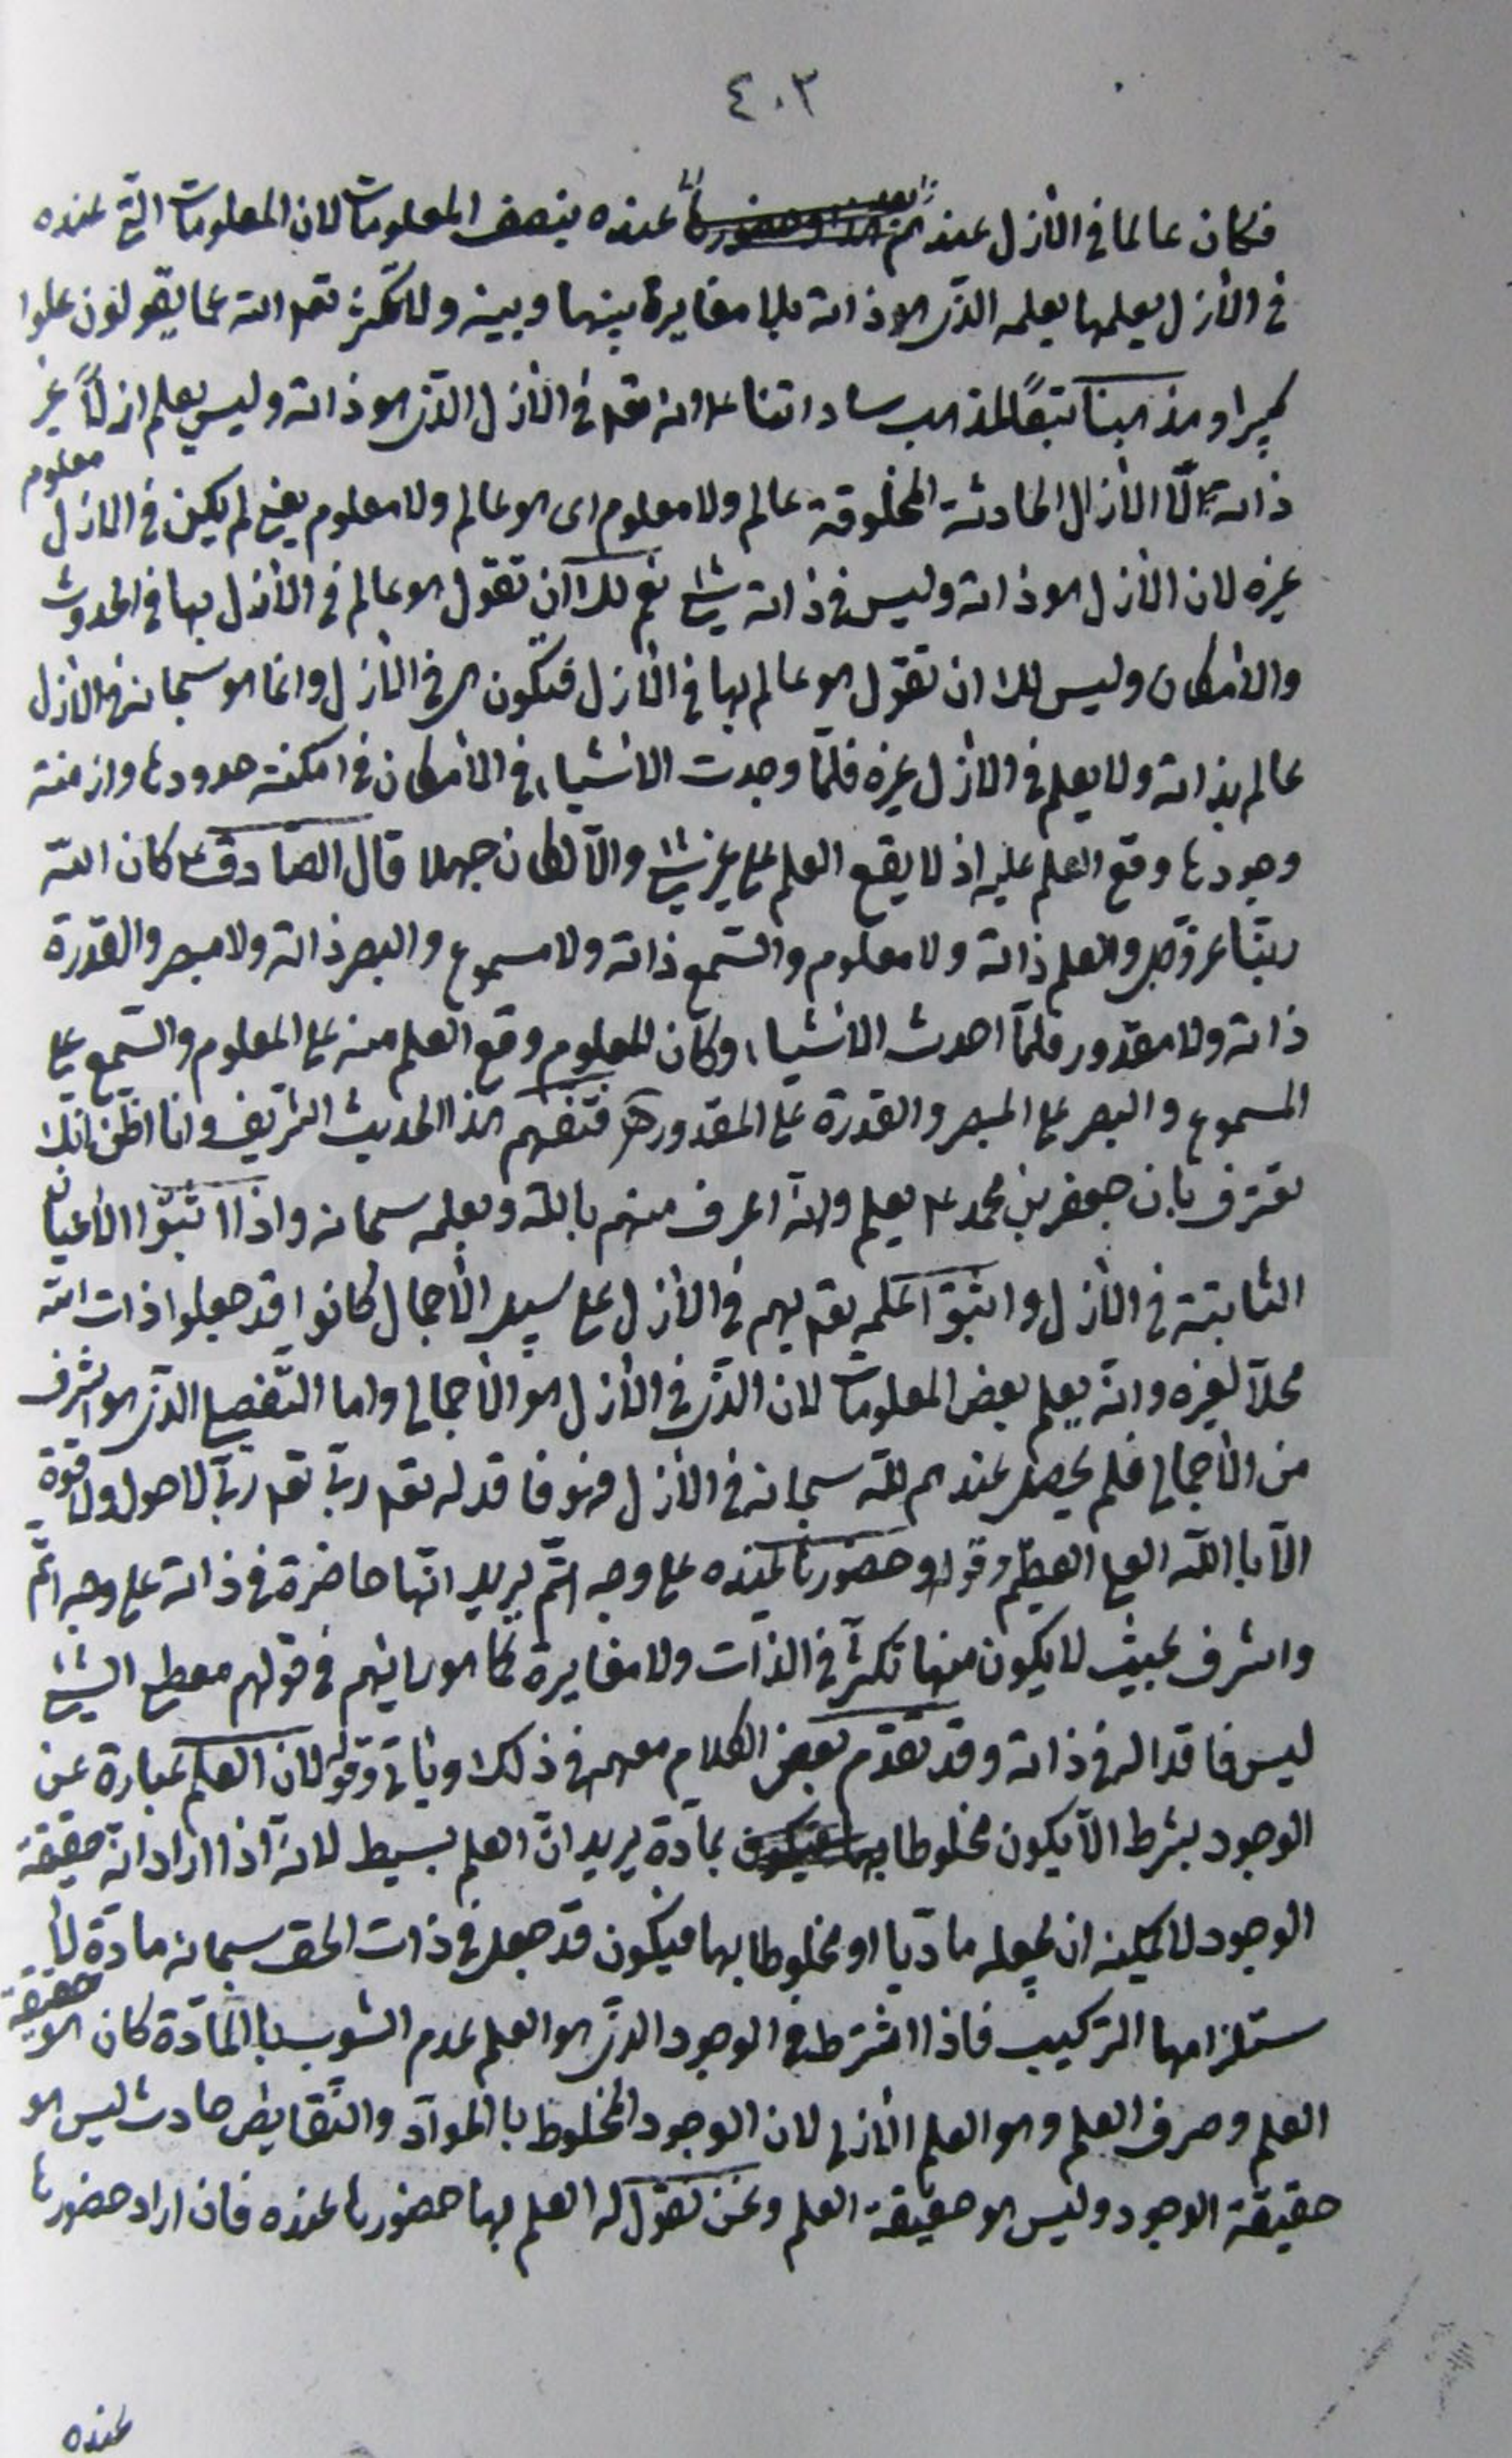 ٤٠٣
فكان عالما فى الأزل عندهم عنده بنصف المعلومات لان المعلومات التى عنده
فى الأزل يعلمها بعلمه الذى هو ذاته بلا مغايرة بينها وبينه ولا تكثر تعه الله عما يقولون علوا
كبيرا ومذهبنا تبعًا لمذهب ساداتنا ع انه تعه فى الأزل الذى هو ذاته وليس يعلم ازلًا غير
ذاته الّا الأزال الحادثة المخلوقة عالم ولا معلوم اى هو عالم ولا معلوم يعنى لم يكن فى الازل معلوم
غيره لان الأزل هو ذاته وليس فى ذاته شئ نعم لك ان تقول هو عالم فى الأزل بها فى الحدوث
والأمكان وليس لك ان تقول هو عالم بها فى الأزل فتكون هى فى الأزل وانما هو سبحانه فى الازل
عالم بذاته ولا يعلم فى الازل غيره فلمّا وجدت الاشياء فى الأمكان فى امكنة حدودها وازمنة
وجودها وقع العلم عليه اذ لا يقع العلم على غير شئ والّا لكان جهلا قال الصادق ع كان الله
ربنا عز وجل والعلم ذاته ولا معلوم والسّمع ذاته ولا مسموع والبصر ذاته ولا مبصر والقدرة
ذاته ولا مقدور فلمّا احدث الاشياء وكان المعلوم وقع العلم منه على المعلوم والسّمع على
المسموع والبصر على المبصر والقدرة على المقدور هـ فتفهم هذا الحديث الشريف وانا اظنّ انّك
تعترف بان جعفر بن محمد ع يعلم وانه اعرف منهم بالله وبعلمه سبحانه واذا اثبتوا الأعيان
الثابتة فى الأزل واثبتوا علمه تعه بهم فى الأزل على سبيل الأجمال كانوا قد جعلوا ذات الله
محلّا لغيره وانه يعلم بعض المعلومات لان الذى فى الأزل هو الأجمالى واما التّفصيلى الذى هو اشرف
من الأجمالى فلم يحصل عندهم لله سبحانه فى الأزل فهو فاقد له تعه ربى تعه ربى لا حول ولا قوة
الّا باالله العلى العظيم وقوله وحضورها عنده على وجه اتمّ يريد انّها حاضرة فى ذاته على وجه اتمّ
واشرف بحيث لا يكون منها تكثر فى الذّات ولا مغايرة كما هو رايهم فى قولهم معطى الشئ
ليس فاقدا له فى ذاته وقد تقدم بعض الكلام معهم فى ذلك وياتى وقوله لان العلم عبارة عن
الوجود بشرط الّا يكون مخلوطا بمادّة يريد انّ العلم بسيط لانه اذا اراد انه حقيقة
الوجود لا يمكنه ان يجعله مادّيا او مخلوطا بها فيكون قد جعل فى ذات الحق سبحانه مادّة لأ
ستلزامها التركيب فاذا اشترط فى الوجود الذى هو العلم عدم الشوب باالمادّة كان هو حقيقة
العلم وصرف العلم وهو العلم الأزلى لان الوجود المخلوط باالموادّ والنّقايض حادث ليس هو
حقيقة الوجود وليس هو حقيقة العلم ونحن نقول له العلم بها حضورها عنده فان اراد حضورها
عنده